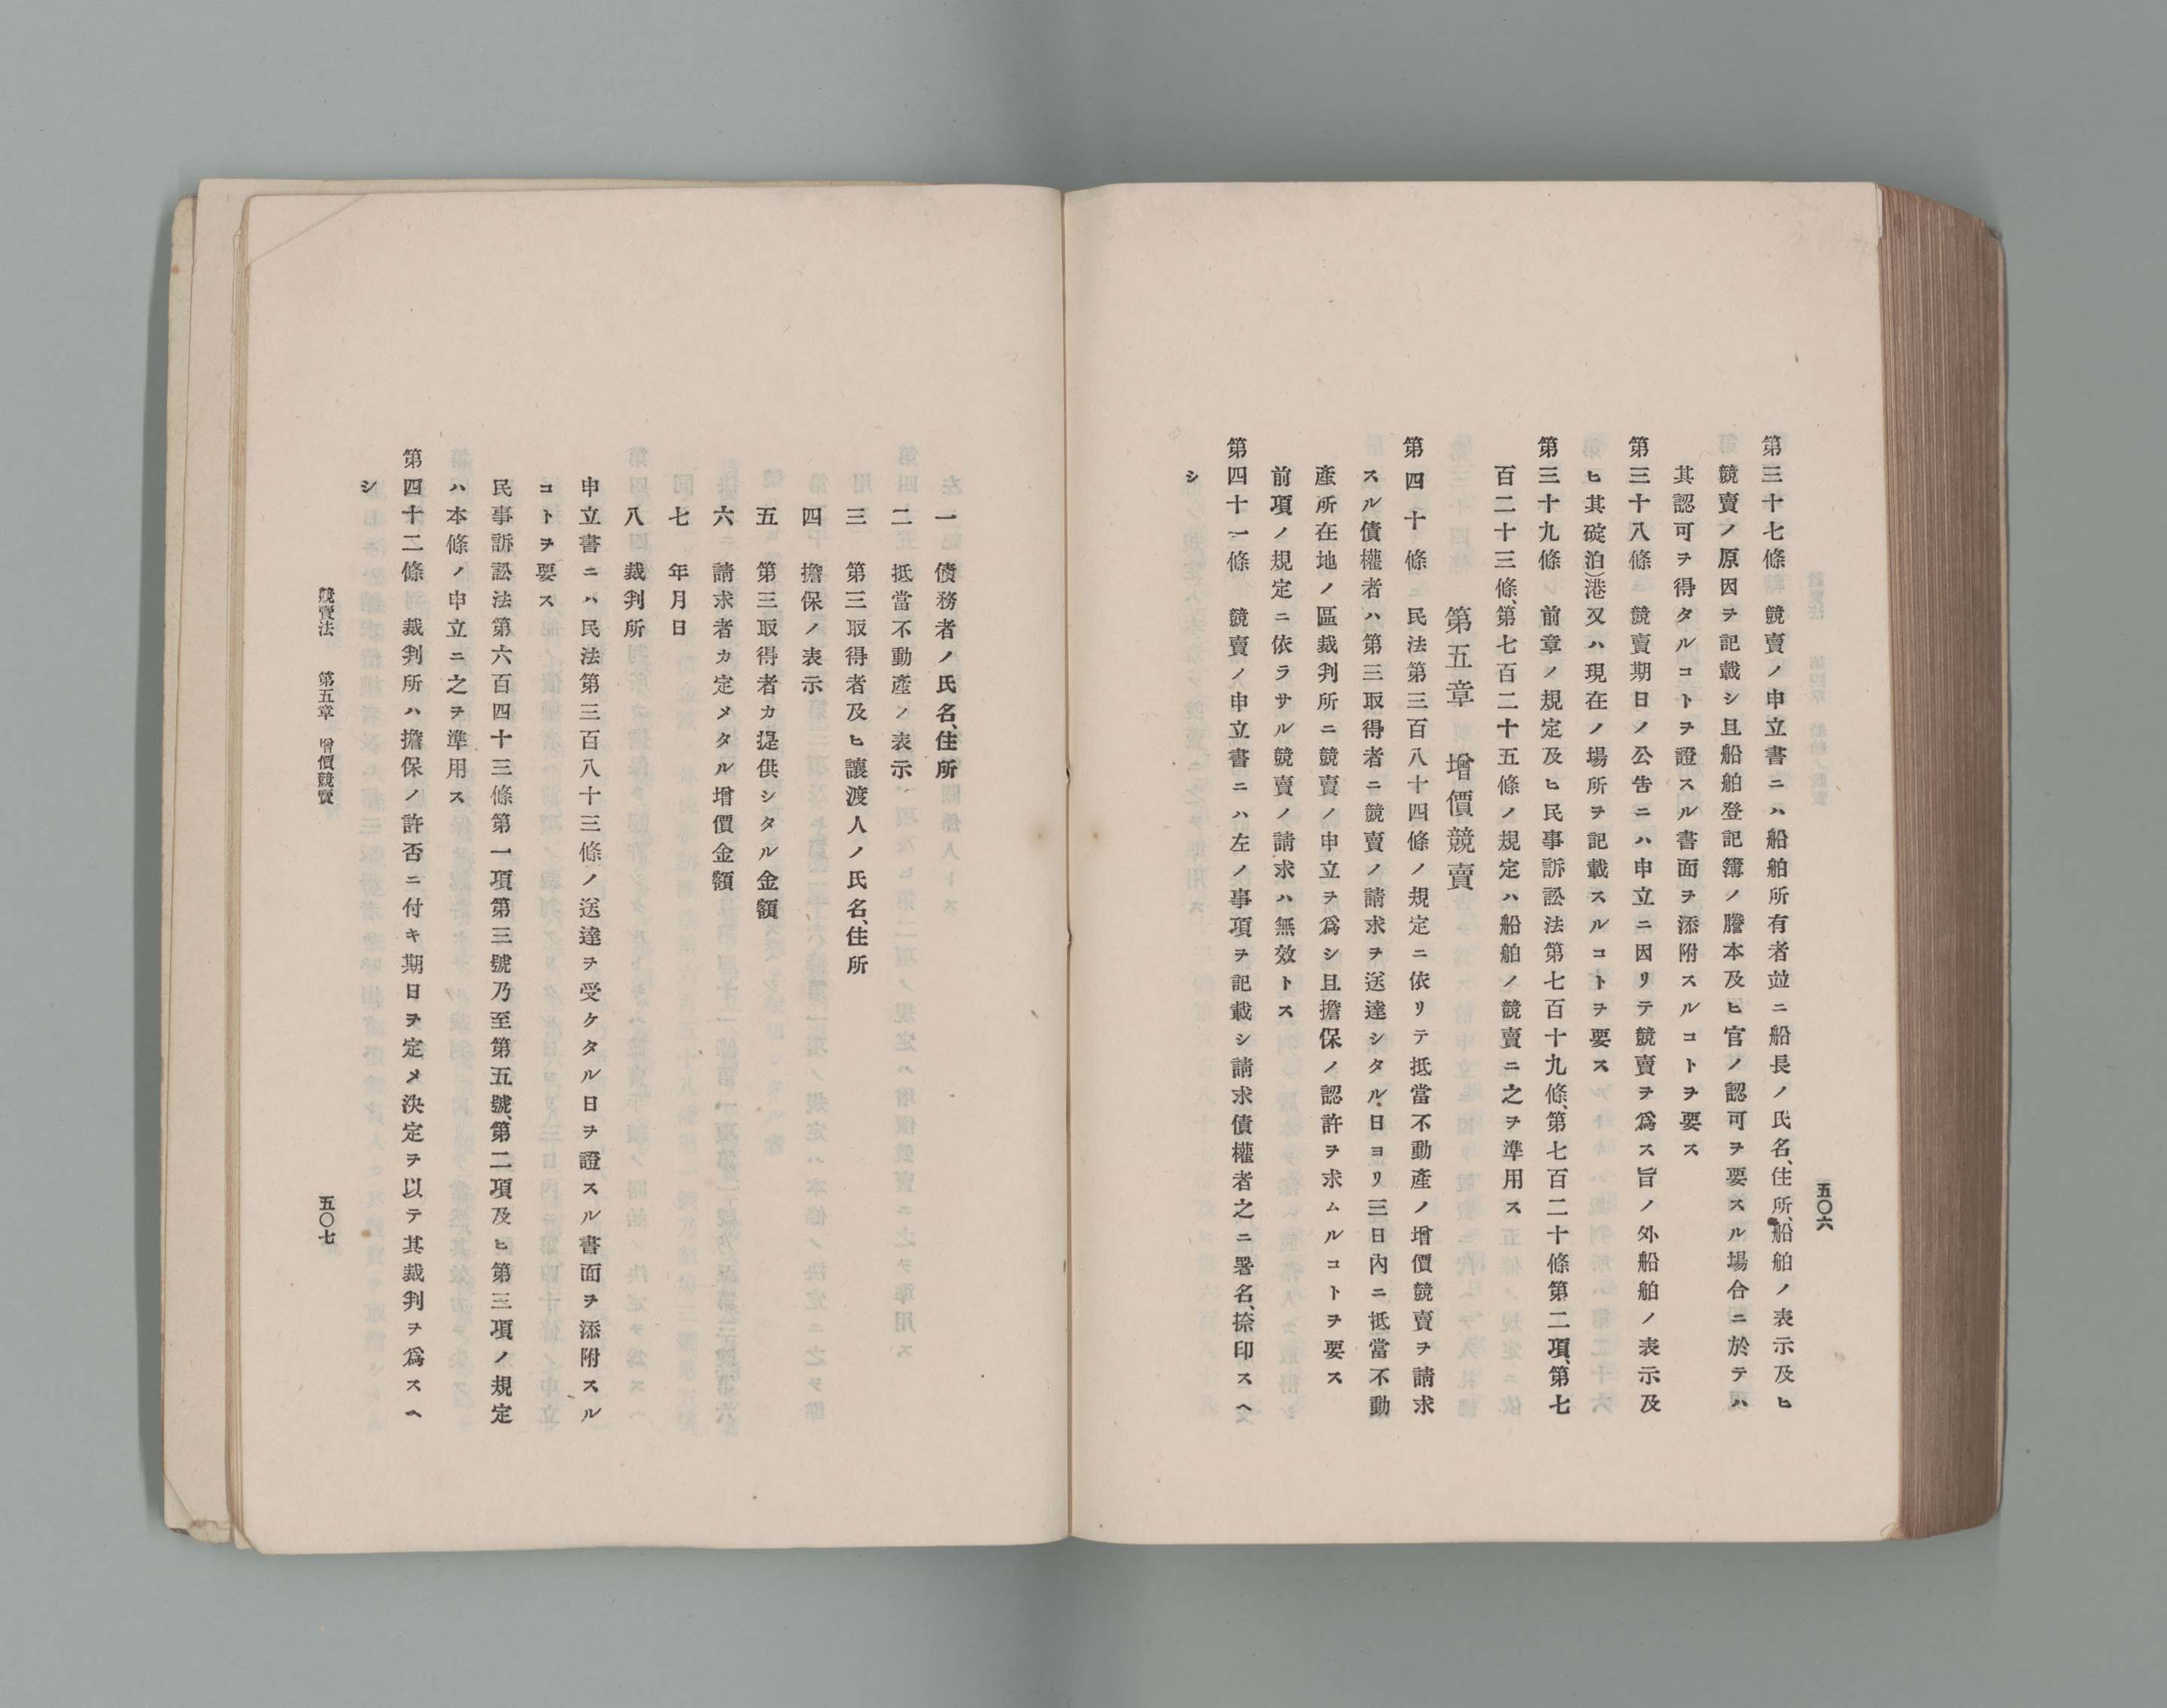 五〇六
第三十七條　競賣ノ申立書ニハ船舶所有者竝ニ船長ノ氏名、住所、船舶ノ表示及ヒ
競賣ノ原因ヲ記載シ且船舶登記簿ノ謄本及ヒ官ノ認可ヲ要スル場合ニ於テハ
其認可ヲ得タルコトヲ證スル書面ヲ添附スルコトヲ要ス
第三十八條　競賣期日ノ公吿ニハ申立ニ因リテ競賣ヲ爲ス旨ノ外船舶ノ表示及
ヒ其碇泊港又ハ現在ノ場所ヲ記載スルコトヲ要ス
第三十九條　前章ノ規定及ヒ民事訴訟法第七百十九條、第七百二十條第二項、第七
百二十三條、第七百二十五條ノ規定ハ船舶ノ競賣ニ之ヲ準用ス
第五章　增價競賣
第四十條　民法第三百八十四條ノ規定ニ依リテ抵當不動產ノ增價競賣ヲ請求
スル債權者ハ第三取得者ニ競賣ノ請求ヲ送達シタル日ヨリ三日內ニ抵當不動
產所在地ノ區裁判所ニ競賣ノ申立ヲ爲シ且擔保ノ認許ヲ求ムルコトヲ要ス
前項ノ規定ニ依ラサル競賣ノ請求ハ無效トス
第四十一條　競賣ノ申立書ニハ左ノ事項ヲ記載シ請求債權者之ニ署名、捺印スヘ
シ
一　債務者ノ氏名、住所
二　抵當不動產ノ表示
三　第三取得者及ヒ讓渡人ノ氏名、住所
四　擔保ノ表示
五　第三取得者カ提供シタル金額
六　請求者カ定メタル增價金額
七　年月日
八　裁判所
申立書ニハ民法第三百八十三條ノ送達ヲ受ケタル日ヲ證スル書面ヲ添附スル
コトヲ要ス
民事訴訟法第六百四十三條第一項第三號乃至第五號、第二項及ヒ第三項ノ規定
ハ本條ノ申立ニ之ヲ準用ス
第四十二條　裁判所ハ擔保ノ許否ニ付キ期日ヲ定メ決定ヲ以テ其裁判ヲ爲スヘ
シ
競賣法　第五章　增價競賣
五〇七